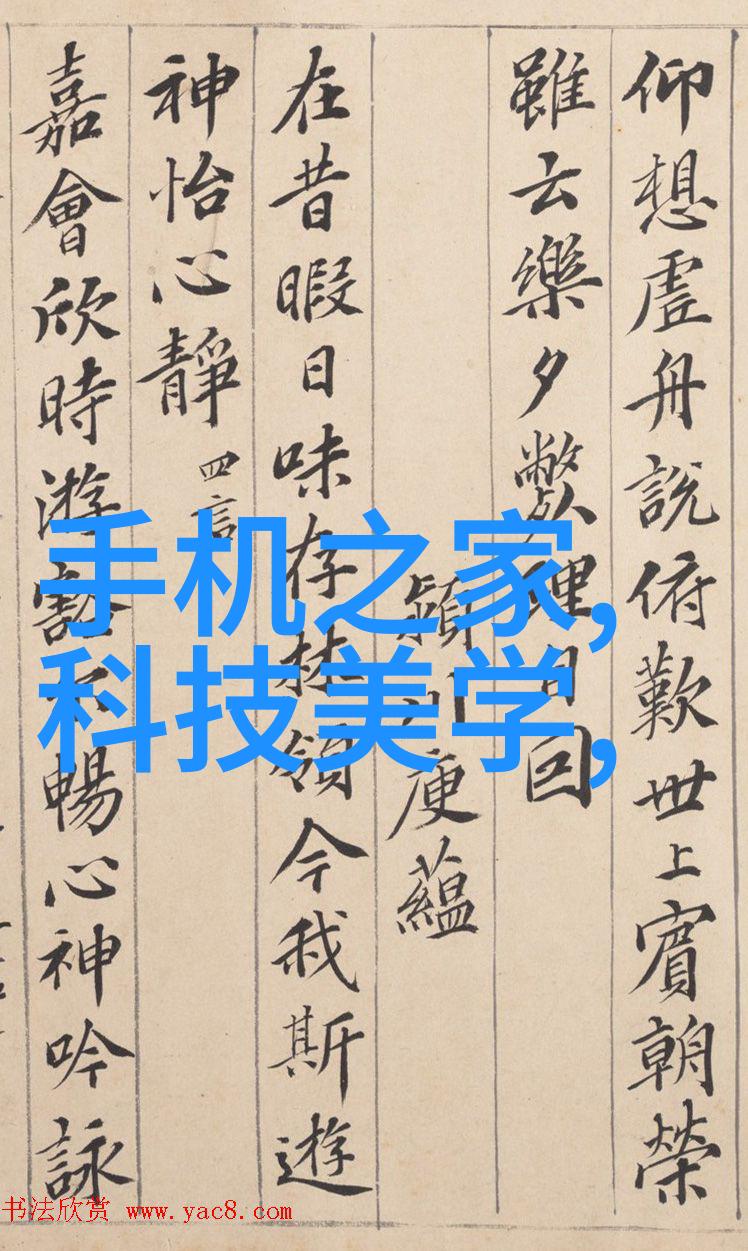 仰想虛舟說俯歎世上賓朝榮
雖云樂夕弊理自回
潁川庾蘊
在昔暇日味存林領今我斯遊
神怡心靜 四言
嘉會欣時游豁尒暢心神吟詠
手机之家,
科技美学,
书法欣赏 www.yac8.com